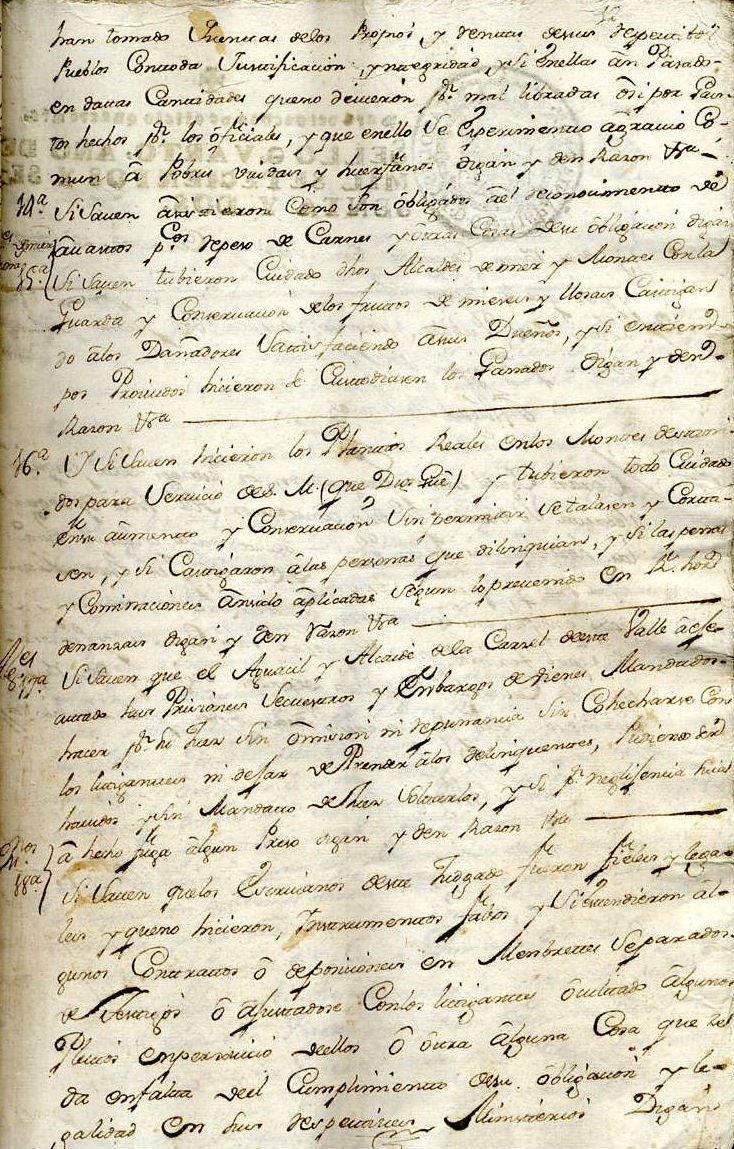 han tomado Quentas delos Propios, y Rentas desus respectibos
Pueblos Contoda Justificacion, yntegridad, ysi enellas an Pasado
en datas Cantidades queno devieron pr. mal libradas ôsi por Gas-
tos hechos pr. los ôficiales, y que enello se experimento âgravio Co-
mun â Pobres viudas y huerfanos digan y den Razon &ra
14ª Si Saven âsistieron Como son ôbligados âel reconocimiento de
âvastos pesos de Carnes y ôtras Cosas desu ôbligacion digan
15ª Si Saven tubieron Cuidado dhos Alcaldes de mies y Montes Conla
Guarda y Conservacion delos fructos de mieses y llosas Castigan
do âlos Dañadores Satisfaciendo âsus Dueños, y si entiem-
pos Proividos hicieron se Custodiasen los Ganados digan y den
Razon &ra
16ª Y Si Saven hicieron los Plantios Reales enlos Montes destina-
dos para Servicio de S. M. (que Dios Gue) y tubieron todo Cuidado
ensu âumento y Conservacion Sin permitir se talasen y Corta-
sen, y si Castigaron âlas personas que dilinquian, y si las penas
y Cominaciones ânsido âplicadas segun lo prevenido en Rs. hor
denanzas digan y den razon &ra
17ª Si Saven que el Aguacil y Alcaide dela Carzel deeste Valle âefe-
ctuado sus Prisiones Secuestros y Embargos de vienes Mandados
hacer pr. su Mrd sin ômision ni repunancia sin Cohecharse Con
los litigantes ni dejar de Prender âlos delinquentes, Pidiendo dros
havidos y sin Mandato de Juez Soltarlos, y si pr. neglisencia suia
â hecho fuga âlgun Preso digan y den Razon &ra
18ª Si Saven quelos Escrivanos deste Juzgado fueron fieles y lega-
les y queno hicieron, Instrumentos falsos y si estendieron al-
gunos Contratos ô deposiciones en Menbretes Separados
de Testigos ô âjustadose Conlos litigantes ôcultado âlgunos
Pleitos enperjuicio deellos ô ôtra âlguna Cosa que zes
da enfalta deel Cumplimiento desu ôbligacion y le-
galidad en sus respectives Ministerios Digan